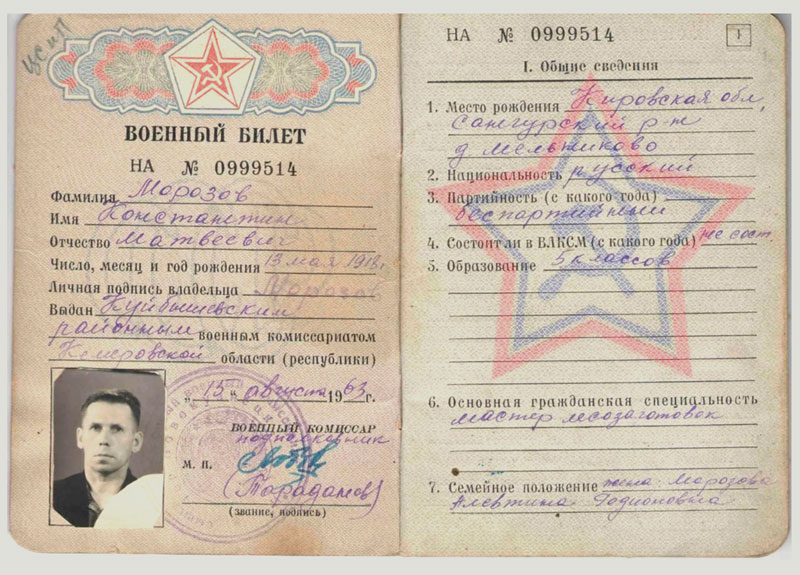 ЦСиП
ВОЕННЫЙ БИЛЕТ
НА № 0999514
Фамилия Морозов
Имя Константин
Отчество Матвеевич
Число, месяц и год рождения 13 мая 1918г
Личная подпись владельца Морозов
Выдан Куйбышевским
районным военным комиссариатом
Кемеровской области (республики)
„15" августа 1963г.
ВОЕННЫЙ КОМИССАР
подполковник
М. П.
(звание, подпись)
НА № 0999514
1
I. Общие сведения
1. Место рождения Кировская обл,
Санчурский р-н
д Мельниково
2. Национальность русский
3. Партийность (с какого года)
беспартийный
4. Состоит ли в ВЛКСМ (с какого года) не сост.
5. Образование 5 классов
6. Основная гражданская специальность
мастер лесозаготовок
7. Семейное положение жена Морозова
Алевтина Родионовна